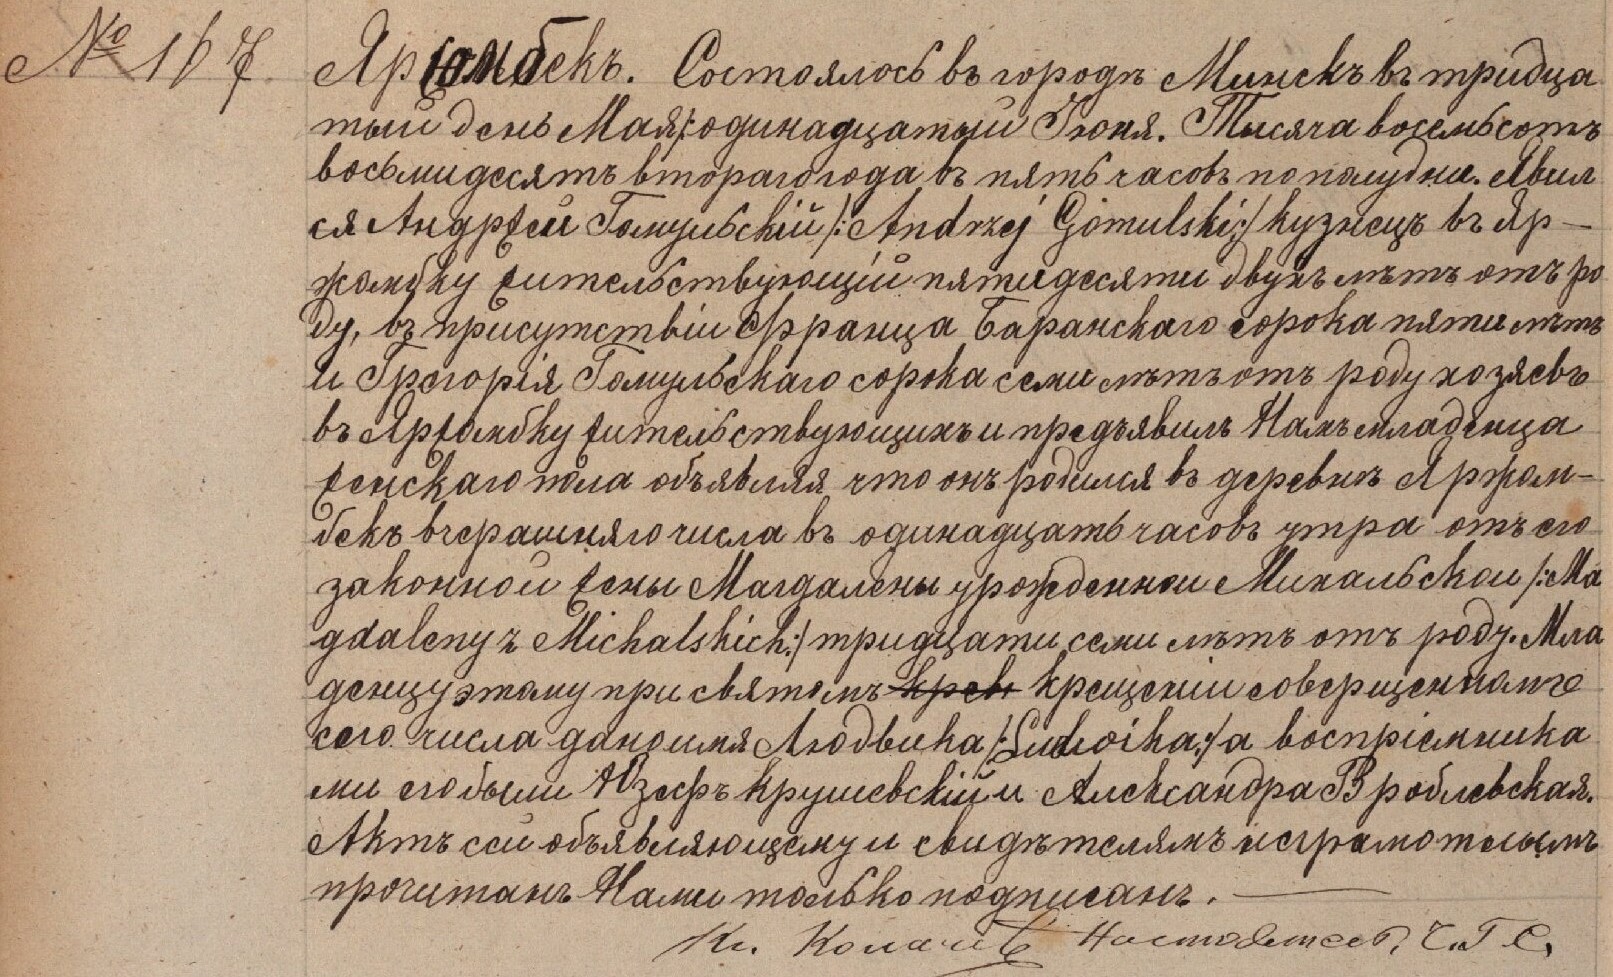 № 167
Яржомбекъ. Состоялось въ городѣ Минскѣ въ тридца
тый день Мая /: одинадцатый Іюня. Тысяча восемьсотъ
восьмидесятъ втораго года въ пять часовъ пополудни. Явил
ся Андржей Гомульскій /: Andrzej Gomulski :/ кузнецъ въ Яр-
жомбку жительствующій пятидесяти двухъ лѣтъ отъ ро
ду, въ присутствіи Франца Баранскаго сорока пяти лѣтъ
и Григорія Гомульскаго сорока семи лѣтъ отъ роду хозяевъ
въ Яржомбку жительствующихъ и предъявилъ Намъ младенца
женскаго пола объявляя что онъ родился въ деревнѣ Яржом-
бекъ вчерашняго числа въ одинадцать часовъ утра отъ его
законной жены Магдалены урожденной Михальской /: Ma
gdaleny z Michalskich :/ тридцати семи лѣтъ отъ роду. Мла
денцу этому при святомъ крещеніи совершенномъ
сего числа дано имя Людвика /: Ludwika :/ а воспріемника
ми его были Юзефъ Крушевскій и Александра Вроблевская.
Актъ сей объявляющему и свидѣтелямъ неграмотнымъ
прочитанъ Нами только подписанъ.
Кс.